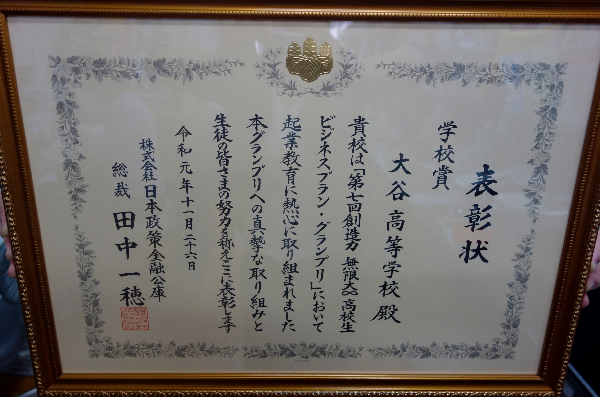 表彰状
学校賞
大谷高等学校 殿
貴校は「第七回創造力、無限大∞ 高校生
ビジネスプラン・グランプリ」において
起業教育に熱心に取り組まれました
本グランプリへの真摯な取り組みと
生徒の皆さまの努力を称えここに表彰します
令和元年十一月二十六日
株式会社日本政策金融公庫
総裁 田中一穂